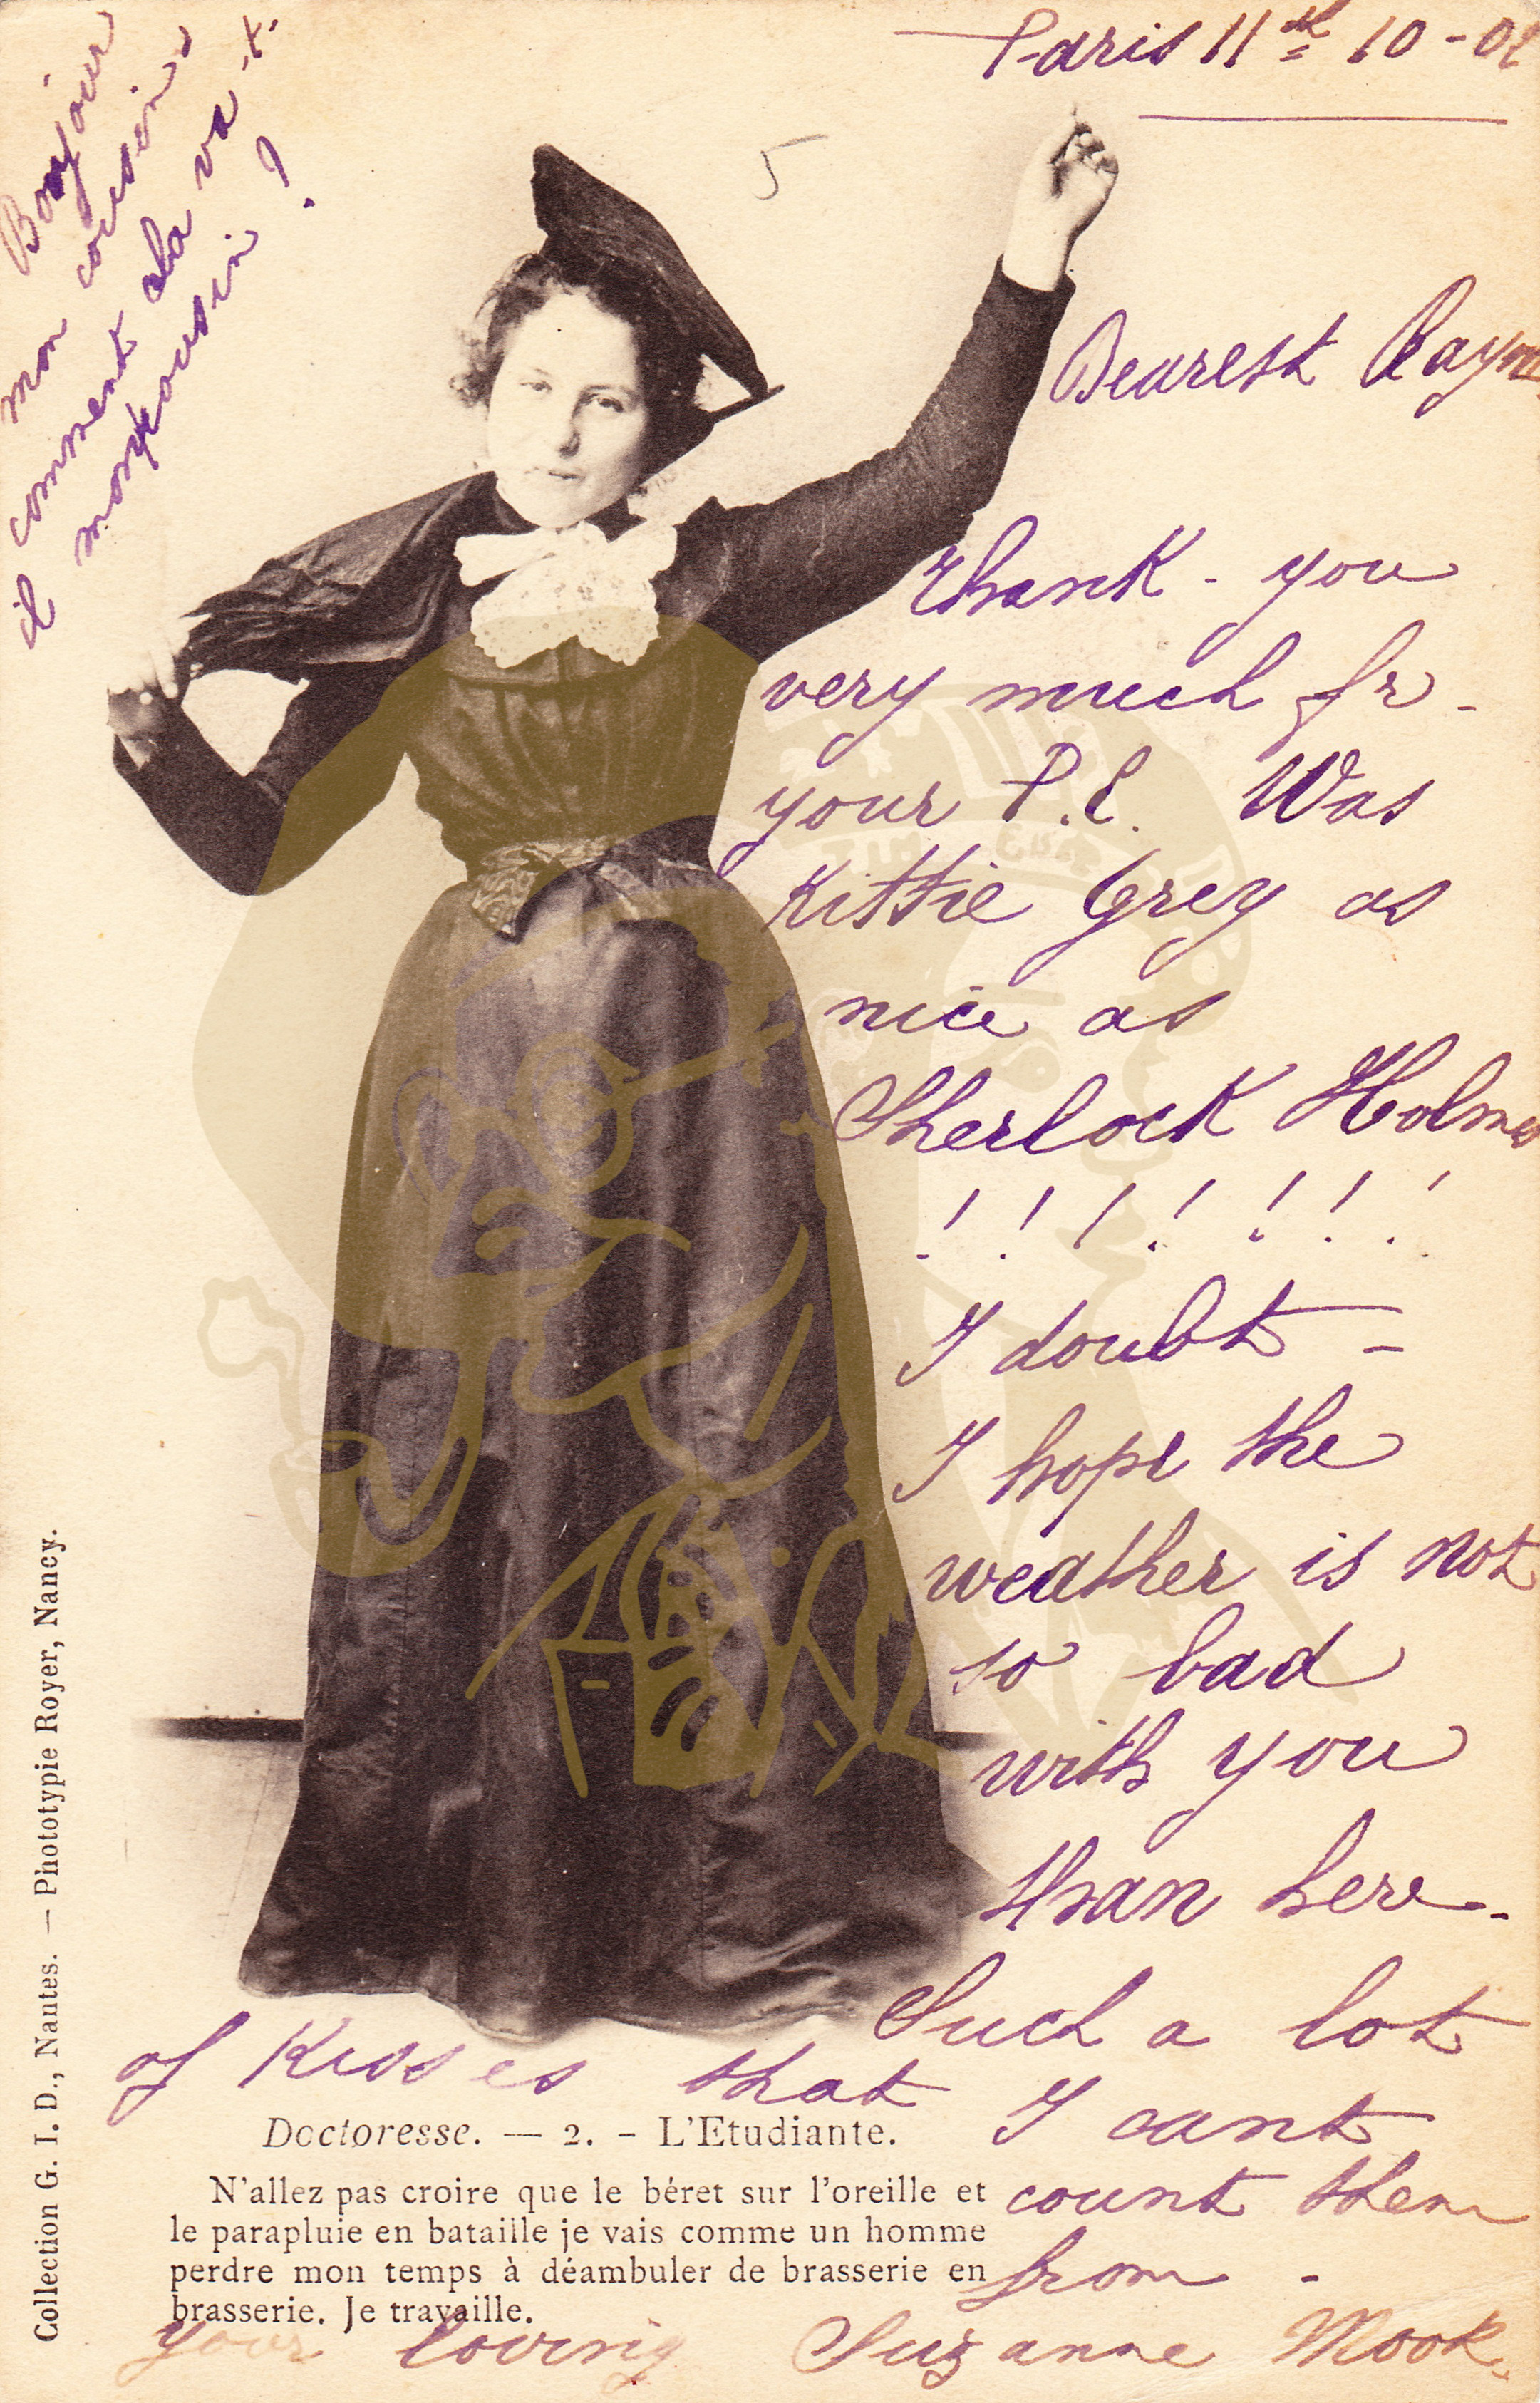 Paris 11th 10-02
5
Bonjour
mon cousin,
comment cela va-t-
il mon cousin!
Dearest
Thank-you
very much fr-
your P.C. Was
Kittie Grey as
nice as
Sherlock Holmes
! ! ! ! ! ! !
I doubt -
I hope the
weather is not
so bad
with you
than here-
Such a lot
of Kisses that I cant
count them
from -
your loving Suzanne Mook.
Doctoresse. — 2. - L'Etudiante.
N'allez pas croire que le béret sur l'oreille et
le parapluie en bataille je vais comme un homme
perdre mon temps à déambuler de brasserie en
brasserie. Je travaille.
Collection G. I. D., Nantes. — Phototypie Royer, Nancy.